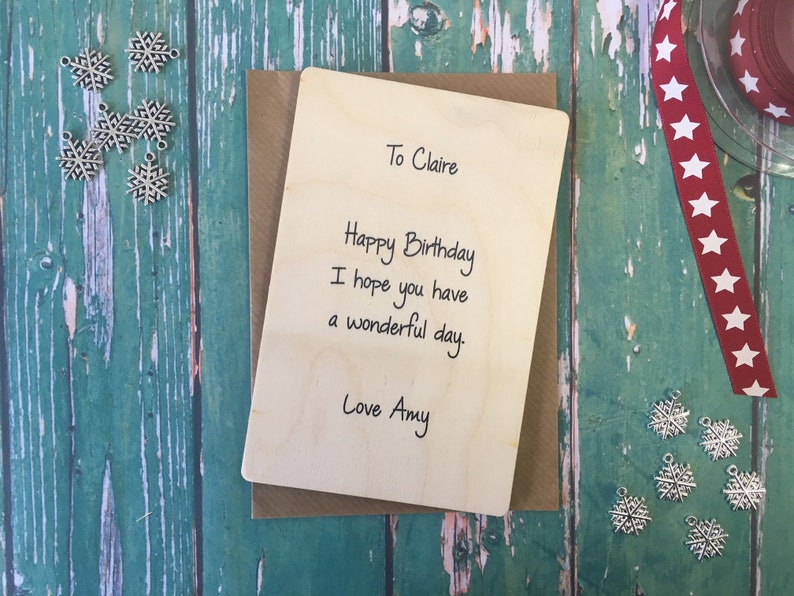 To Claire
Happy Birthday
I hope you have
a wonderful day.
Love Amy